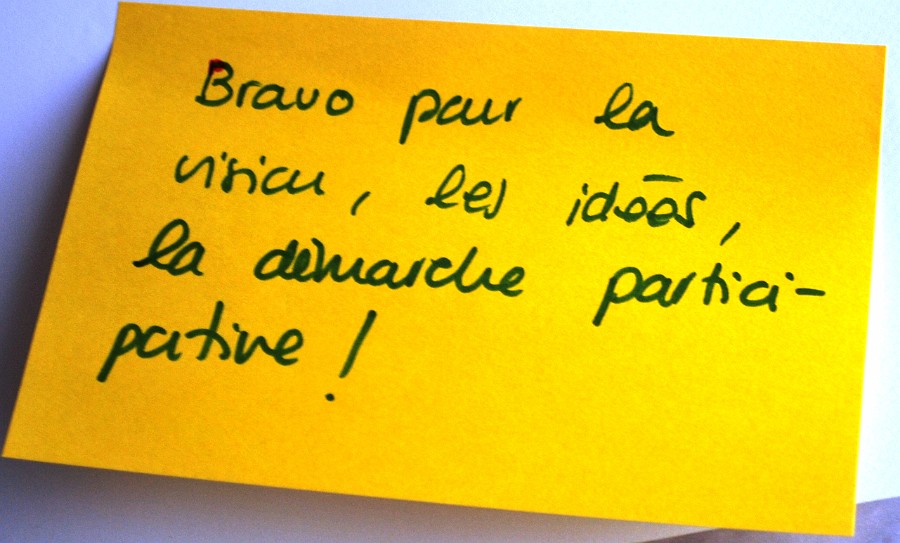 Bravo pour la
vision, les idées,
la démarche partici-
pative !